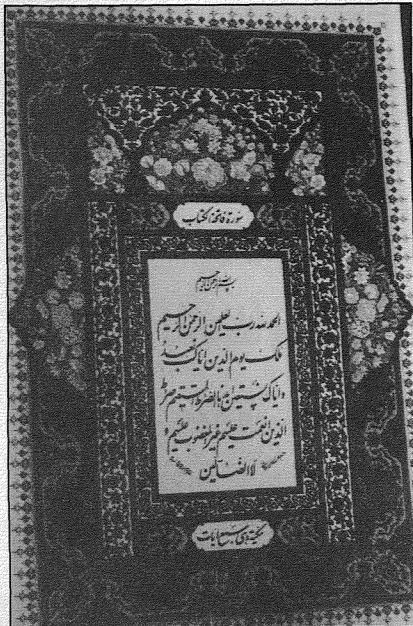 سورة فاتحة الکتاب
بسم الله الرحمن الرحیم
الحمد لله رب العلمین الرحمن الرحیم
ملک یوم الدین ایاک نعبد
و ایاک نستعین اهدنا الصراط المستقیم صراط
الذین انعمت علیهم غیر المغضوب علیهم و
لا الضالین
مکیة و هی سبع آیات